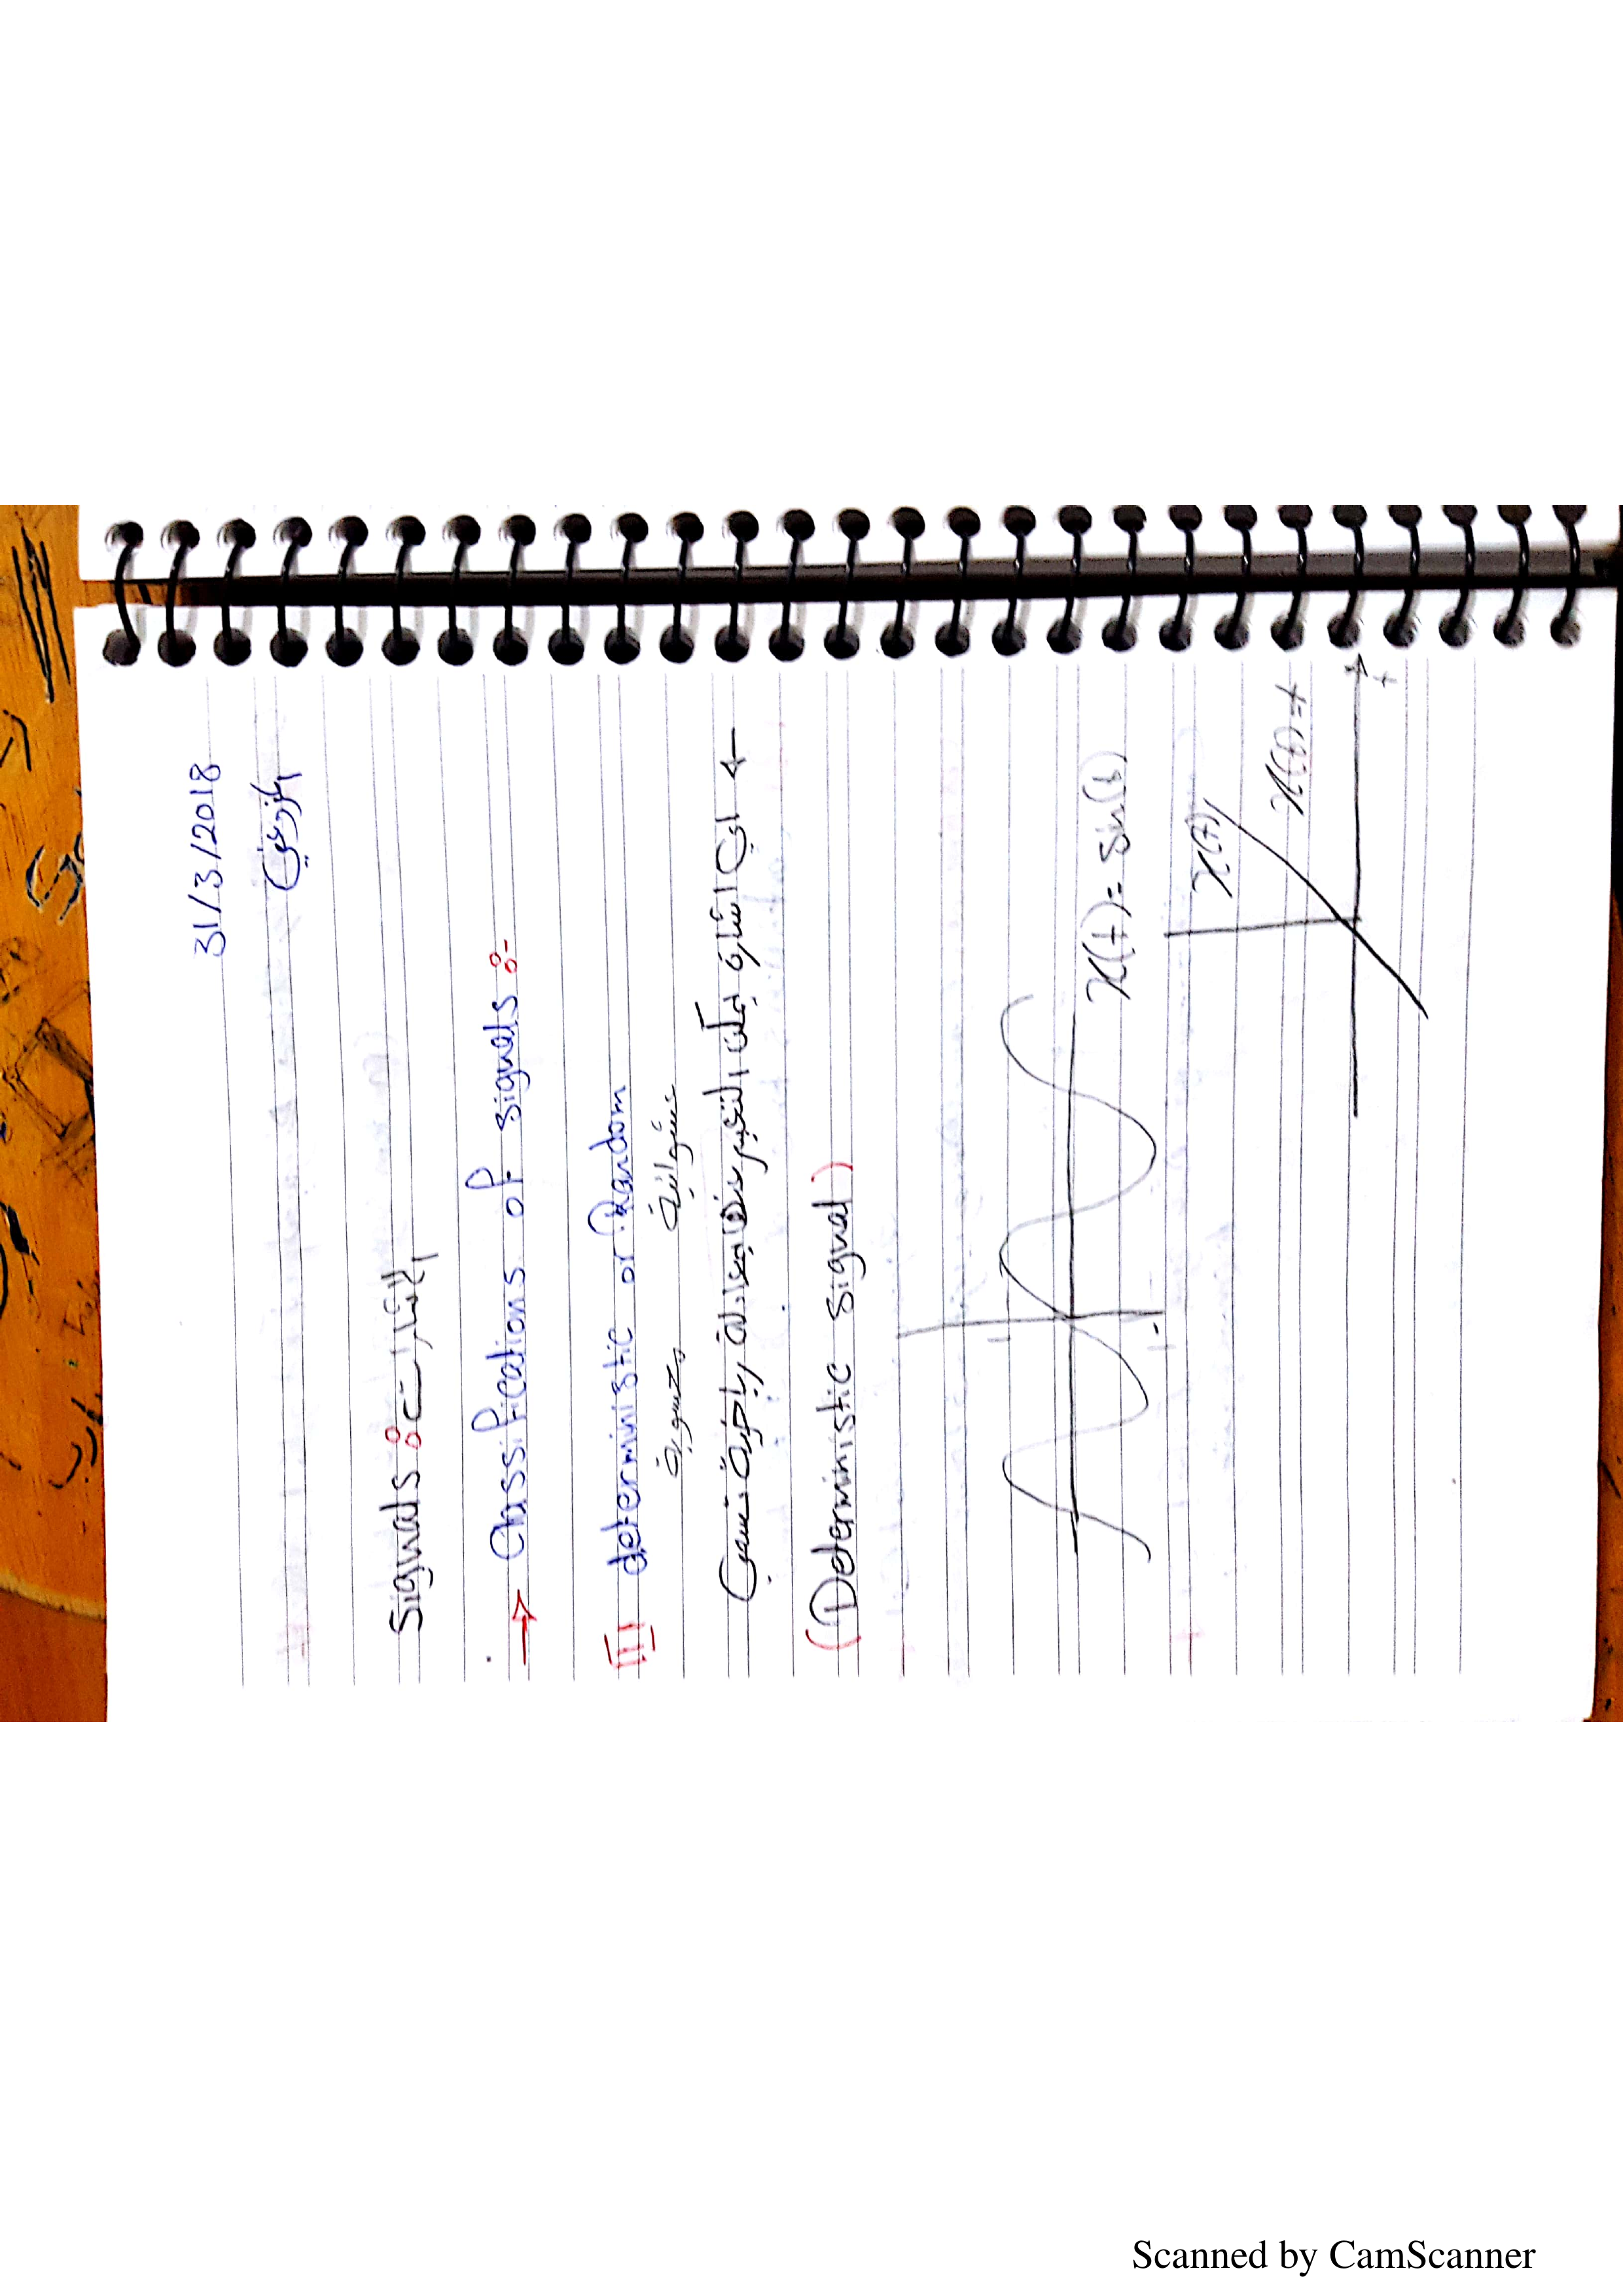 31/3/2018
Signals : الإشارات
→ Classifications of signals :-
[1] deterministic or Random
محسوبة عشوائية
← اي اشارة يمكن التعبير عنها بمعادلة رياضية تسمى
(Deterministic signal)
1
-1
x(t) = sin(t)
x(t)
x(t) = t
t
Scanned by CamScanner